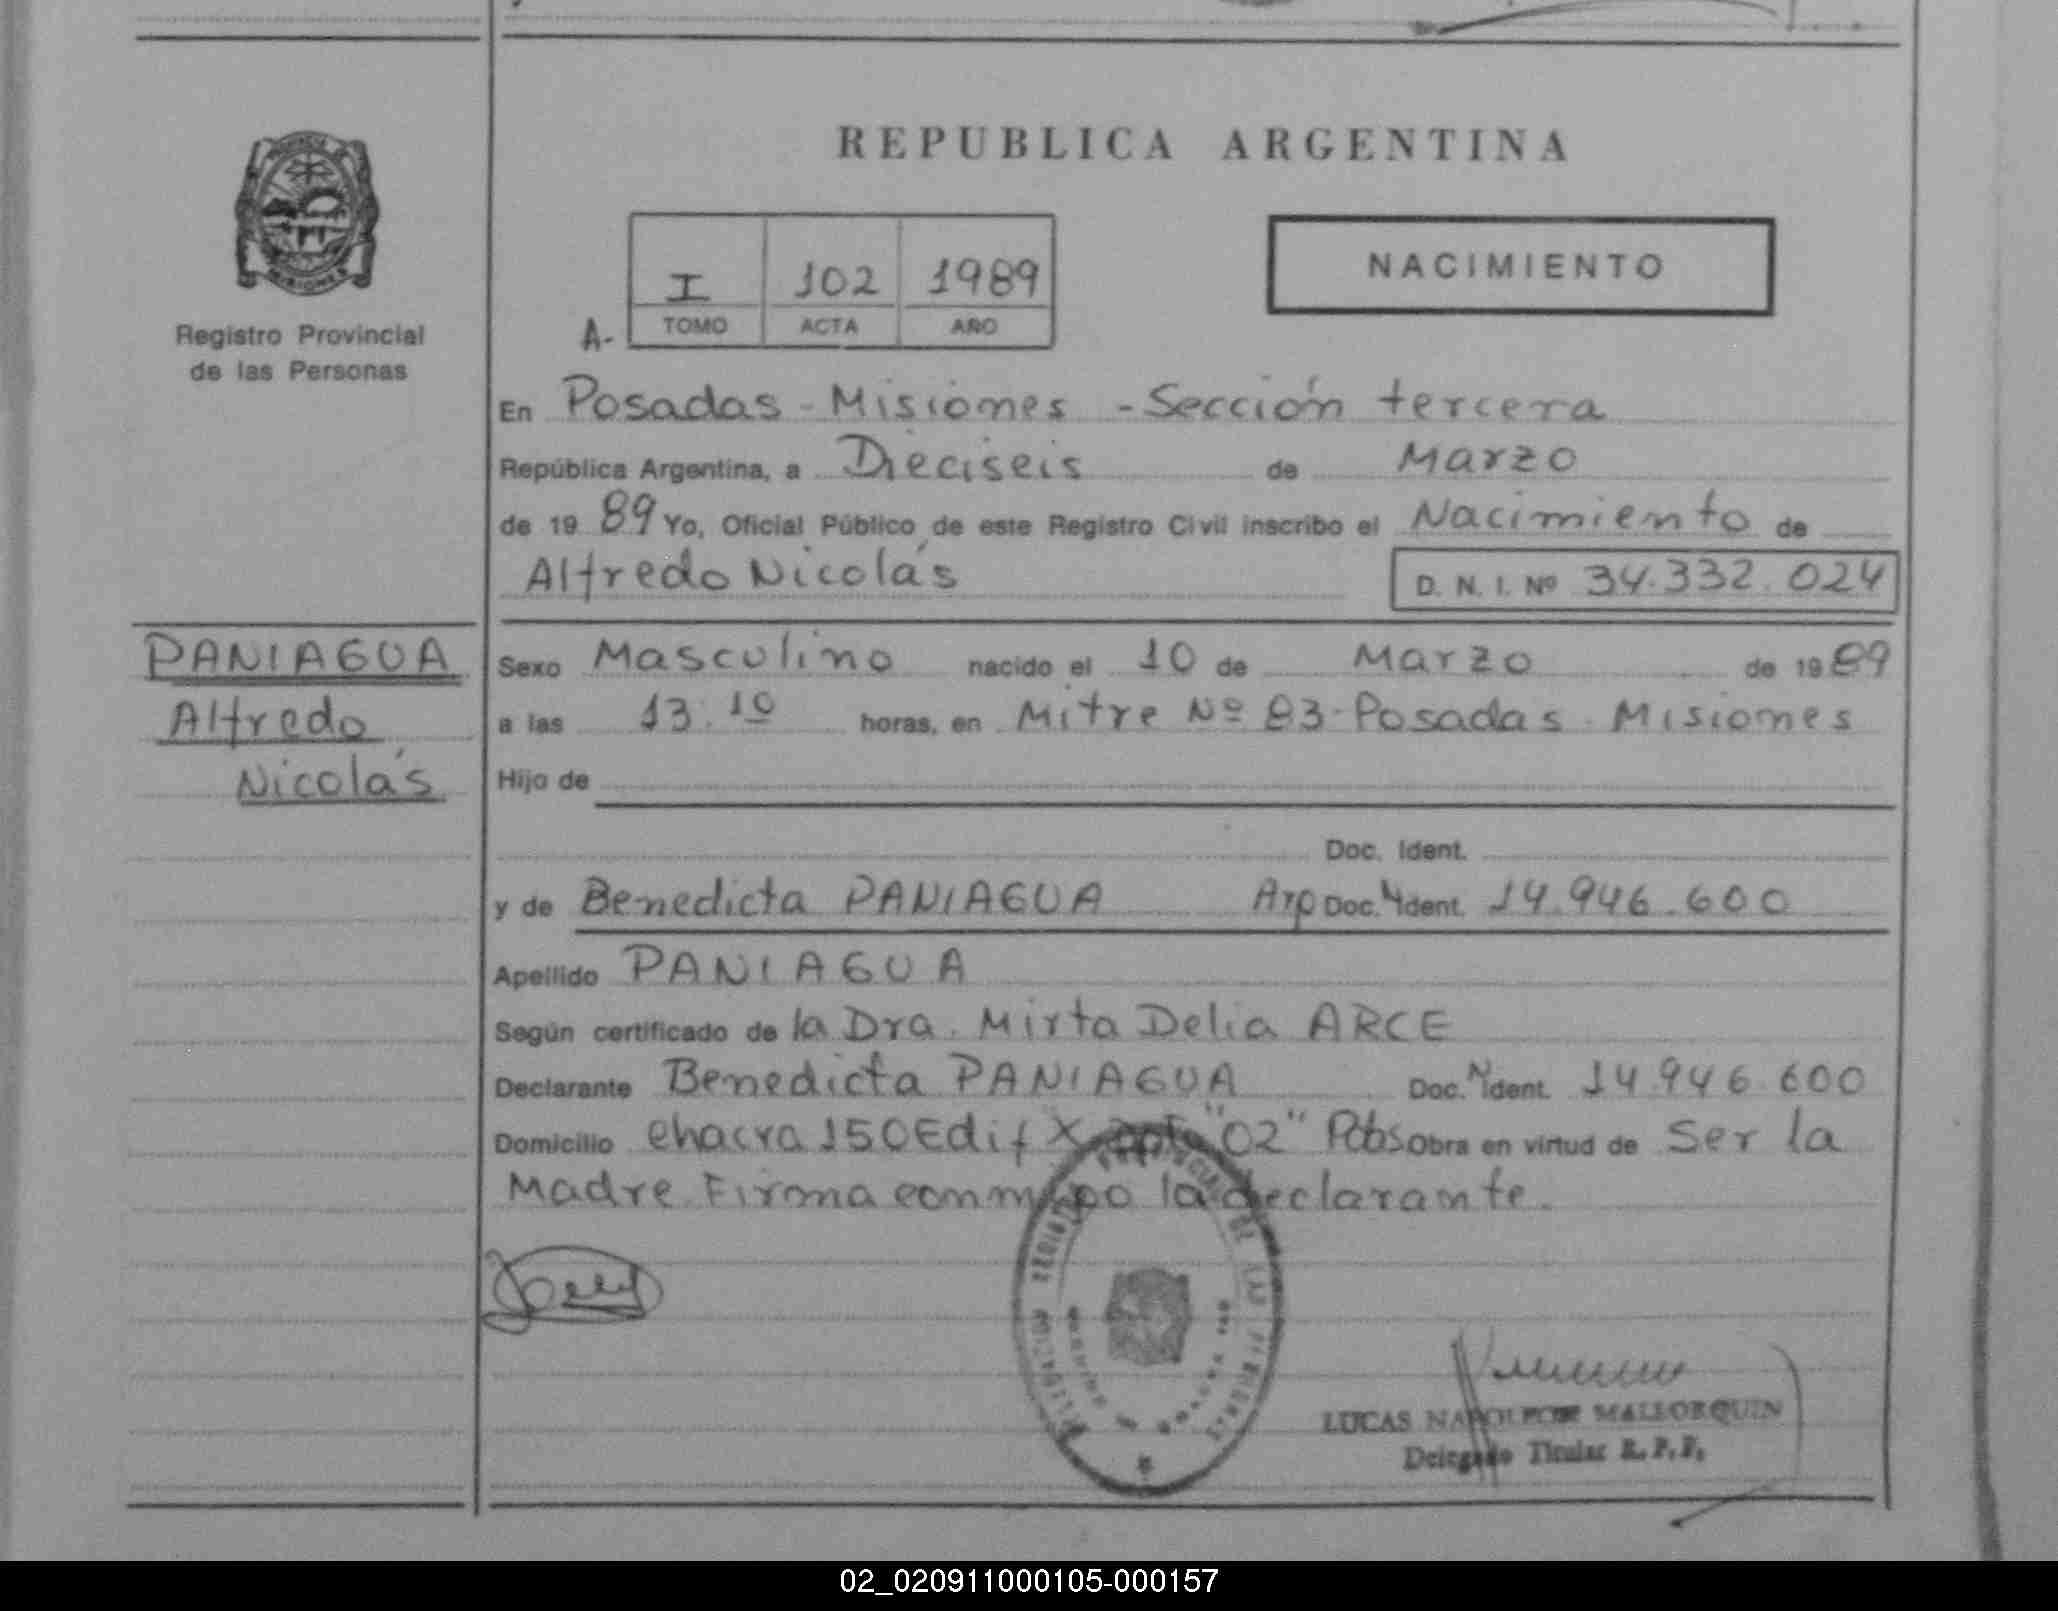 REPUBLICA ARGENTINA
MISIONES
Registro Provincial
de las Personas
I 102 1989
A- TOMO ACTA AÑO
NACIMIENTO
En Posadas - Misiones - Sección tercera
República Argentina, a Dieciseis de Marzo
de 19 89 Yo, Oficial Público de este Registro Civil inscribo el Nacimiento de
Alfredo Nicolás D. N. I. Nº 34.332.024
PANIAGUA
Alfredo
Nicolás
Sexo Masculino nacido el 10 de Marzo de 19 89
a las 13:10 horas, en Mitre Nº 83-Posadas. Misiones
Hijo de
Doc. Ident.
y de Benedicta PANIAGUA Arg Doc. N Ident. 14.946.600
Apellido PANIAGUA
Según certificado de la Dra. Mirta Delia ARCE
Declarante Benedicta PANIAGUA Doc. N Ident. 14.946.600
Domicilio chacra 150 Edif X "02" Pdas Obra en virtud de Ser la
Madre. Firma conmigo la declarante.
LUCAS NAPOLEON MALLORQUIN
Delegado Titular R. P. P.
02_020911000105-000157